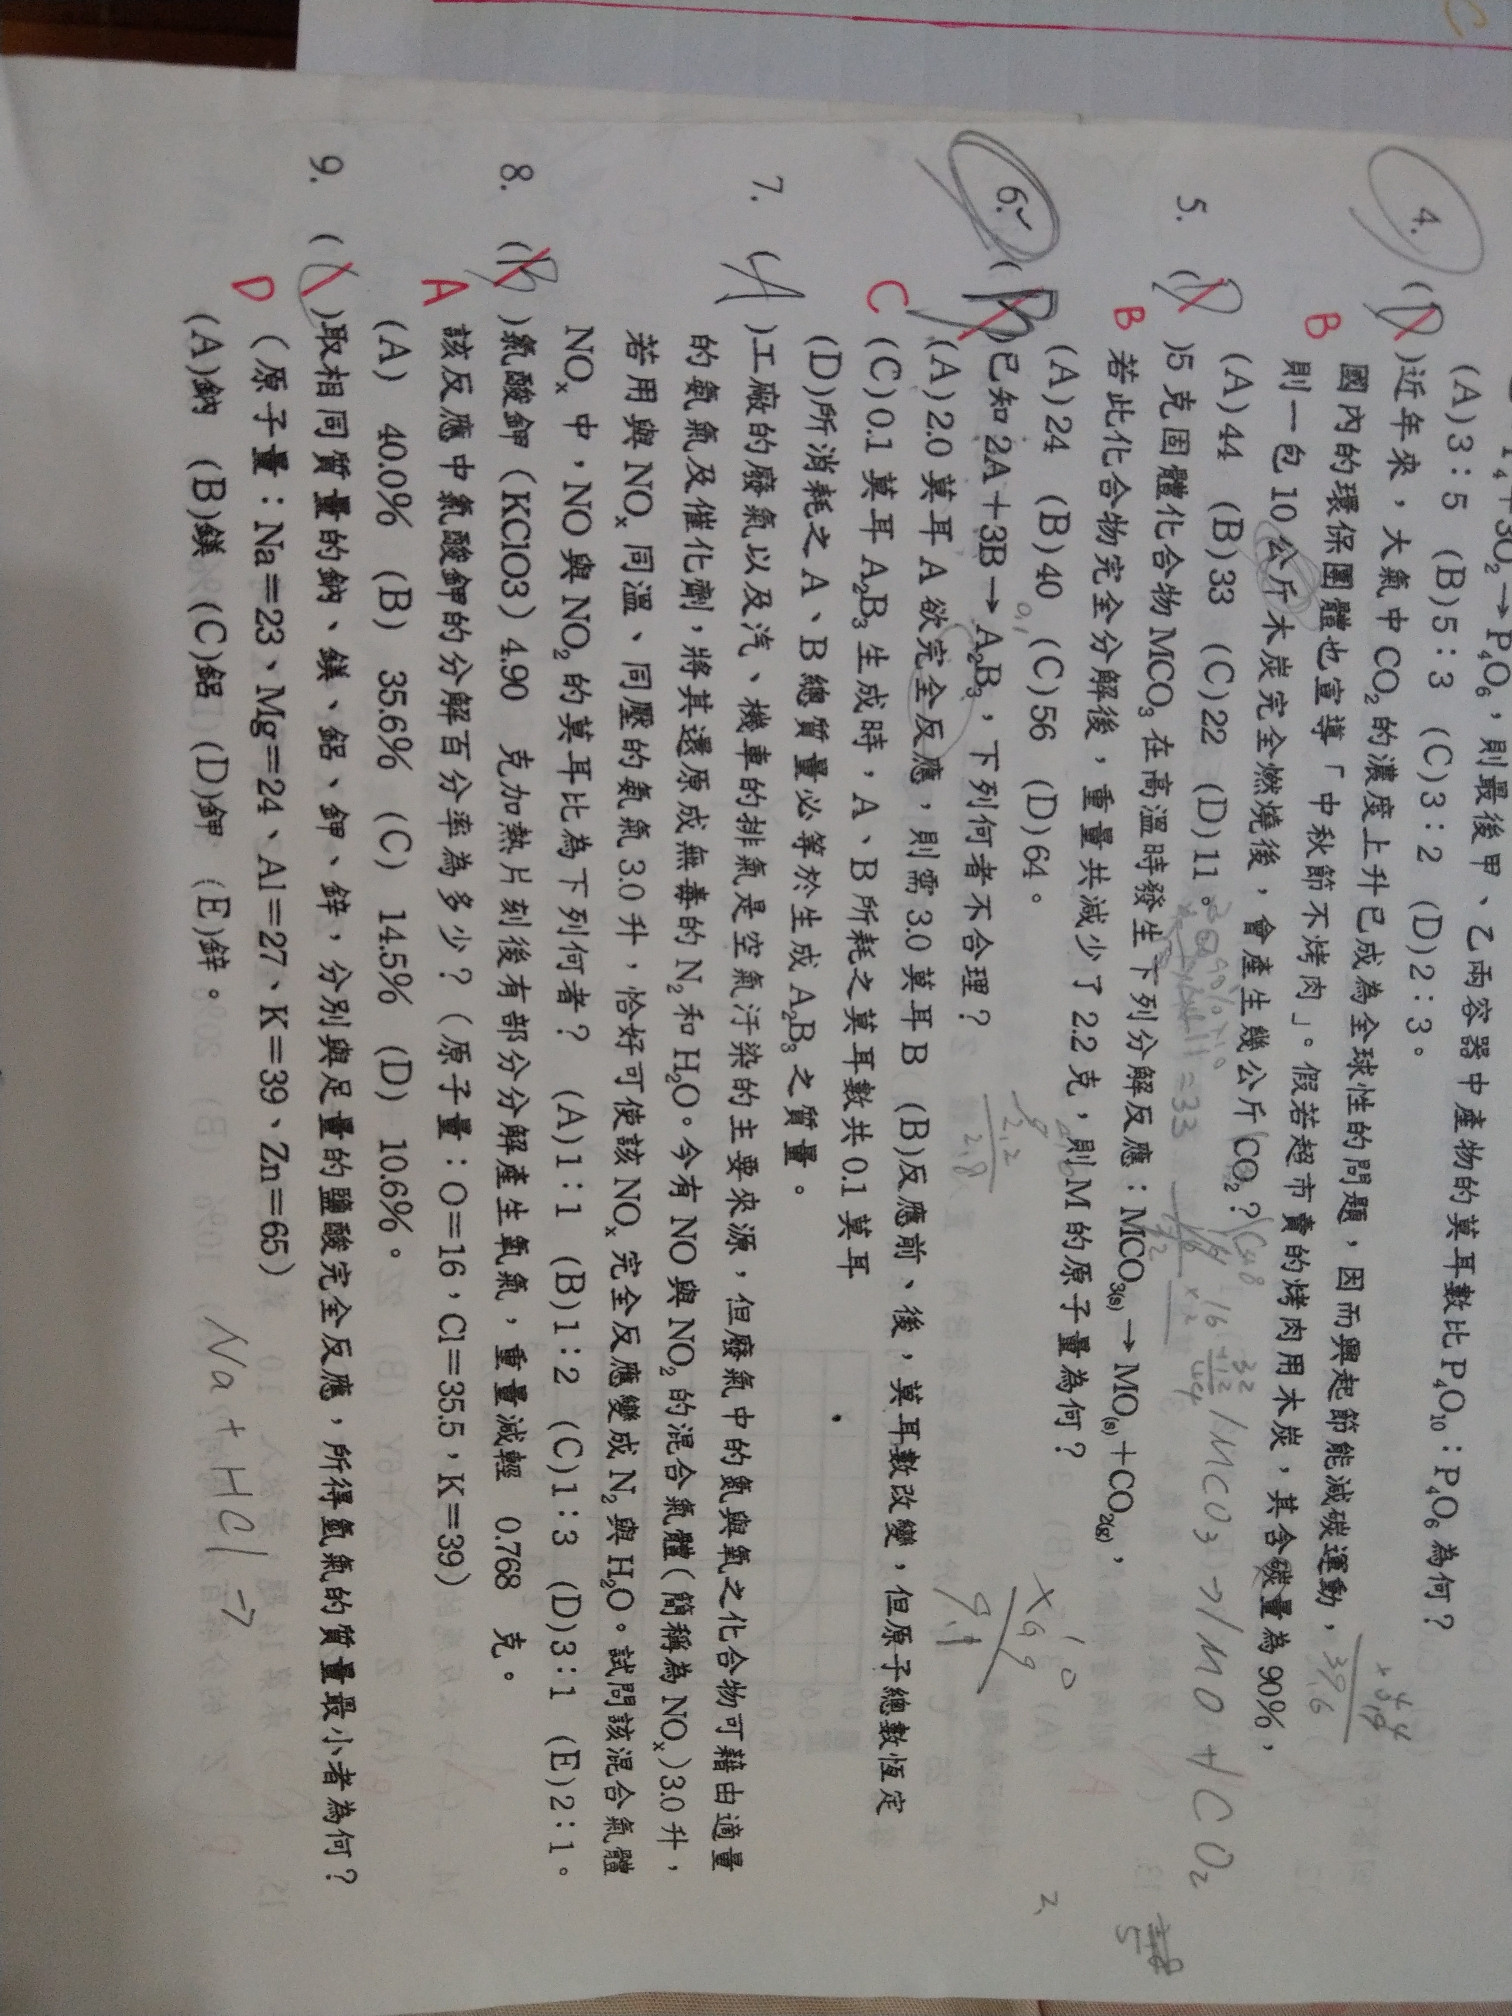 P₄+3O₂→P₄O₆,則最後甲、乙兩容器中產物的莫耳數比P₄O₁₀:P₄O₆為何?
(A)3:5 (B)5:3 (C)3:2 (D)2:3。
4. (D)近年來,大氣中CO₂的濃度上升已成為全球性的問題,因而興起節能減碳運動,
國內的環保團體也宣導「中秋節不烤肉」。假若超市賣的烤肉用木炭,其含碳量為90%,
B 則一包10公斤木炭完全燃燒後,會產生幾公斤CO₂?
(A)44 (B)33 (C)22 (D)11。
39.6
1MCO₃→1MO+CO₂
5. (D)5克固體化合物MCO₃在高溫時發生下列分解反應:MCO₃(s)→MO(s)+CO₂(g),
B 若此化合物完全分解後,重量共減少了2.2克,則M的原子量為何?
(A)24 (B)40 (C)56 (D)64。
2.2
2.8
6. (B)已知2A+3B→A₂B₃,下列何者不合理?
C (A)2.0莫耳A欲完全反應,則需3.0莫耳B (B)反應前、後,莫耳數改變,但原子總數恆定
(C)0.1莫耳A₂B₃生成時,A、B所耗之莫耳數共0.1莫耳
(D)所消耗之A、B總質量必等於生成A₂B₃之質量。
7. (A)工廠的廢氣以及汽、機車的排氣是空氣汙染的主要來源,但廢氣中的氮與氧之化合物可藉由適量
的氨氣及催化劑,將其還原成無毒的N₂和H₂O。今有NO與NO₂的混合氣體(簡稱為NOₓ)3.0升,
若用與NOₓ同溫、同壓的氨氣3.0升,恰好可使該NOₓ完全反應變成N₂與H₂O。試問該混合氣體
NOₓ中,NO與NO₂的莫耳比為下列何者? (A)1:1 (B)1:2 (C)1:3 (D)3:1 (E)2:1。
8. (B)氯酸鉀(KClO3)4.90 克加熱片刻後有部分分解產生氧氣,重量減輕 0.768 克。
A 該反應中氯酸鉀的分解百分率為多少?(原子量:O=16,Cl=35.5,K=39)
(A) 40.0% (B) 35.6% (C) 14.5% (D) 10.6%。
9. ( )取相同質量的鈉、鎂、鋁、鉀、鋅,分別與足量的鹽酸完全反應,所得氫氣的質量最小者為何?
D (原子量:Na=23、Mg=24、Al=27、K=39、Zn=65)
(A)鈉 (B)鎂 (C)鋁 (D)鉀 (E)鋅。
Na+HCl→